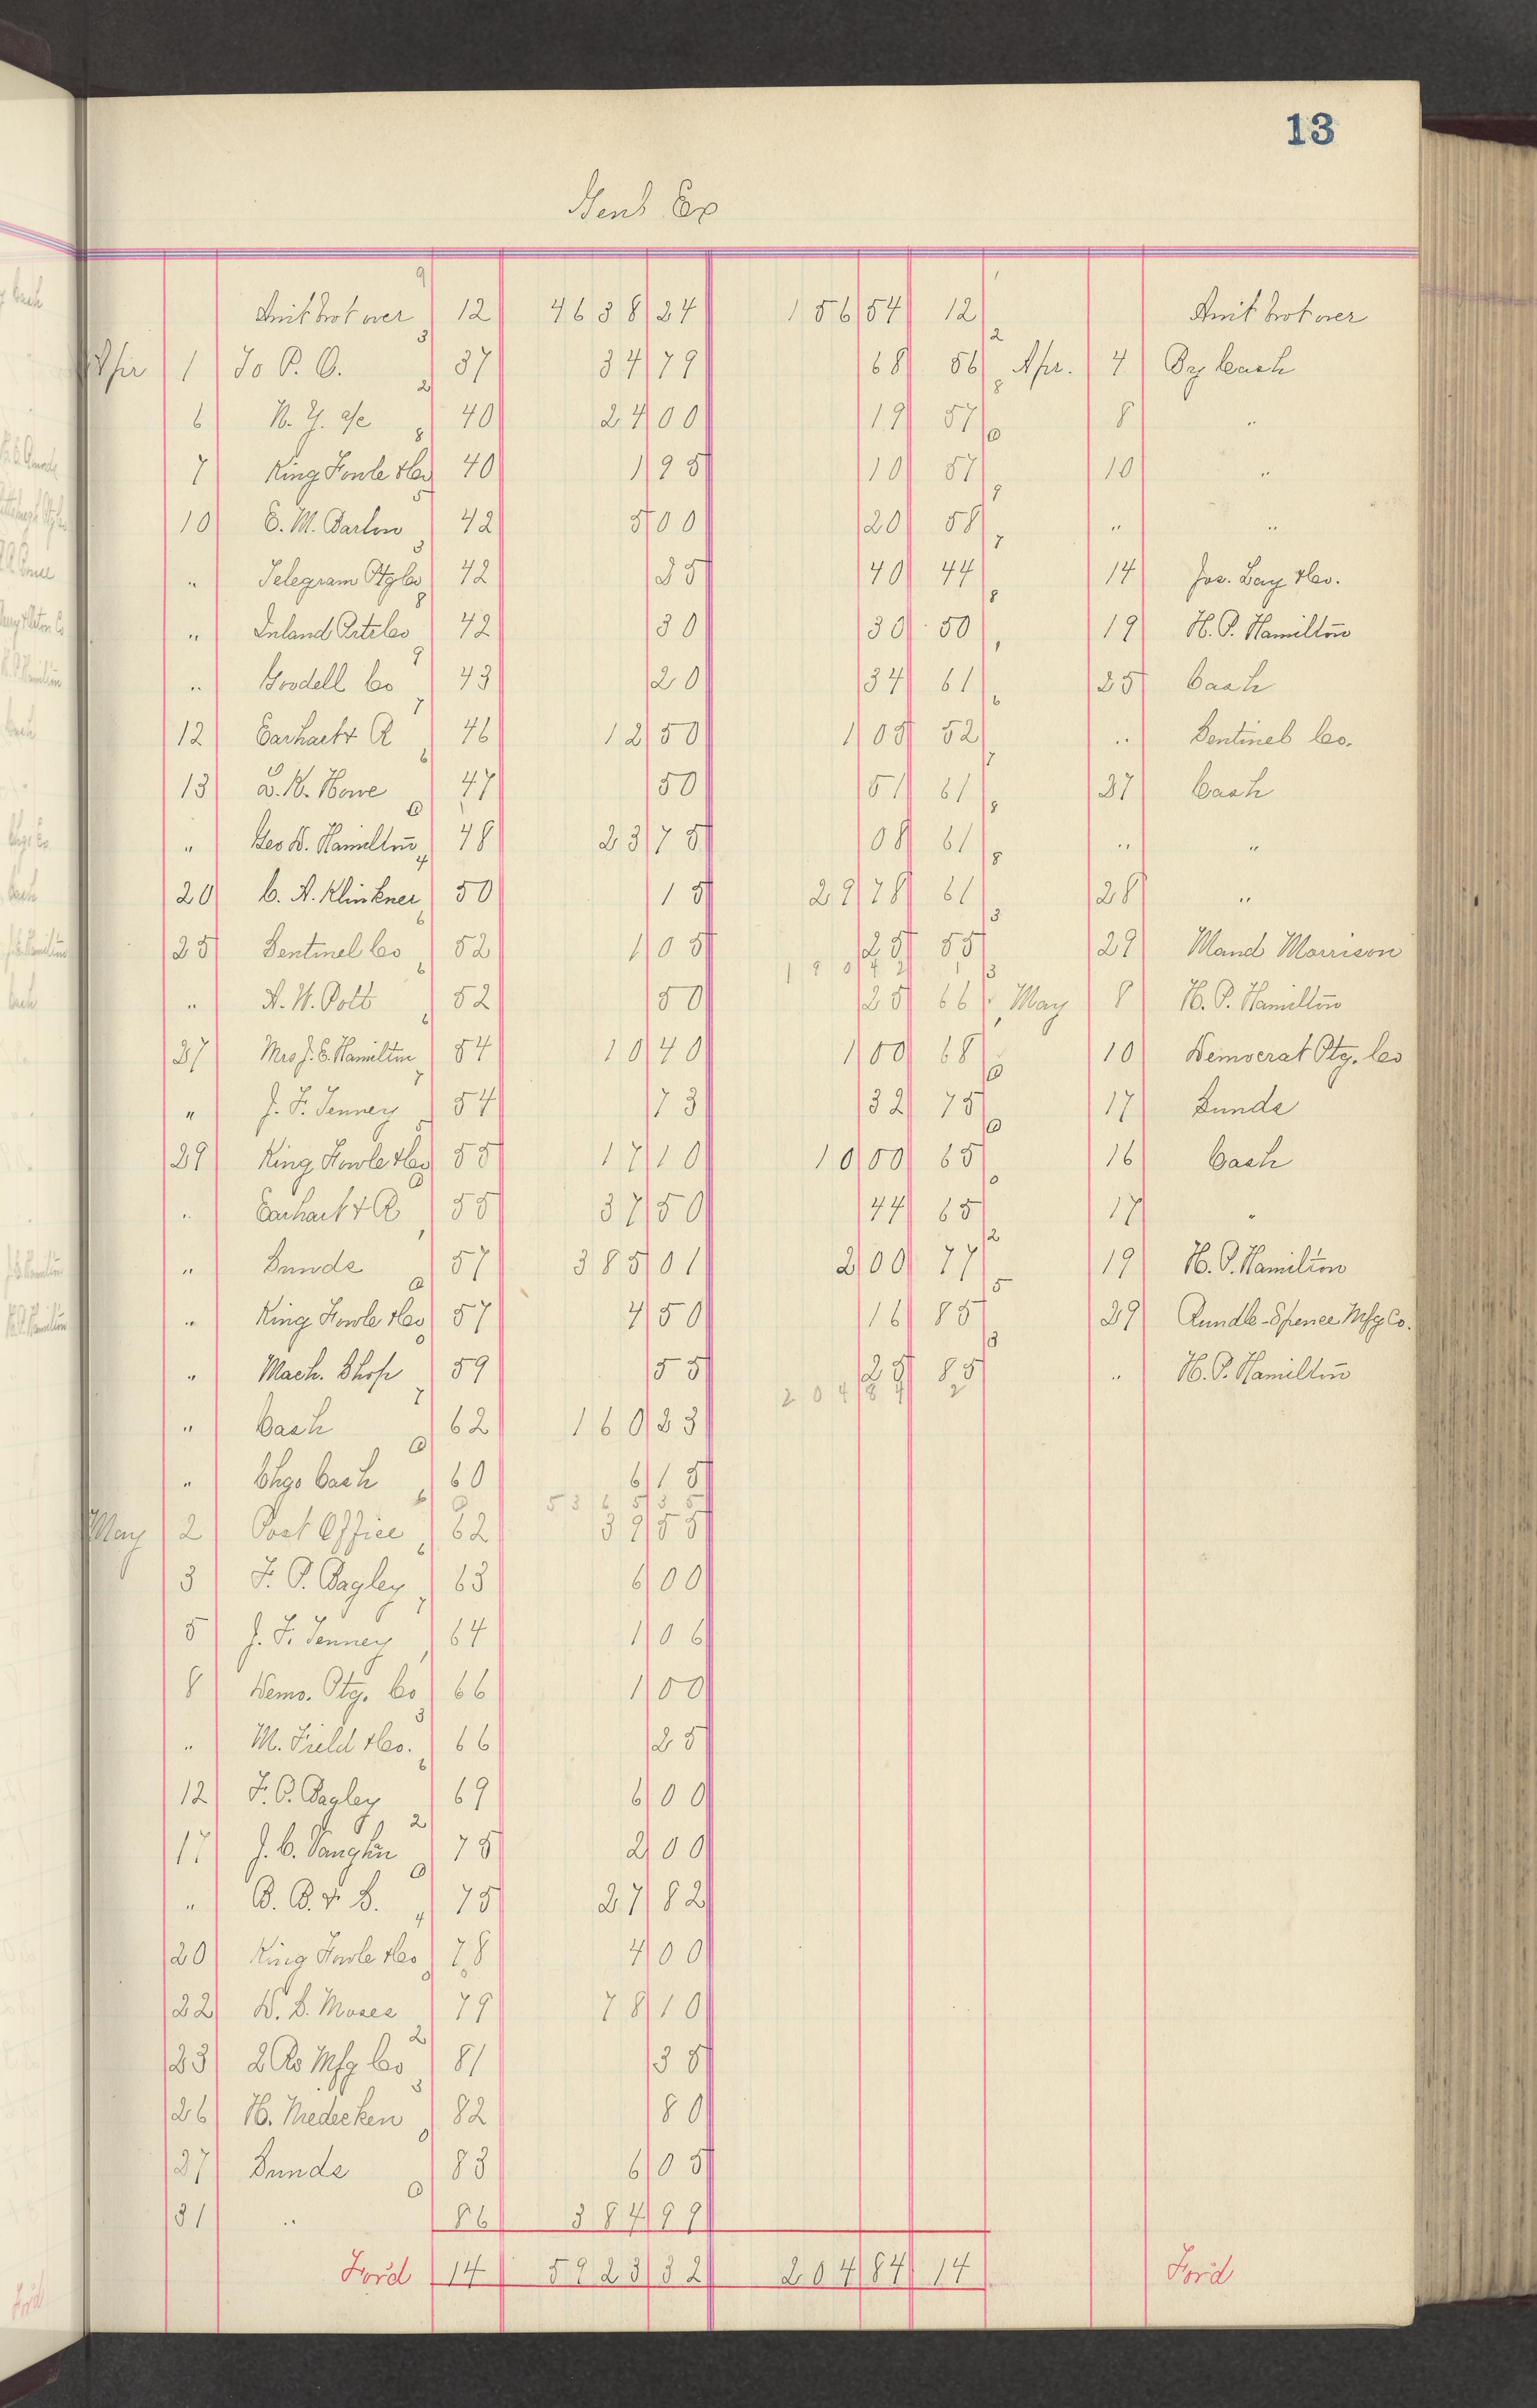 13
Genl Ex
Amt brot over 12 4638 24 156 54 12 Amt brot over
Apr 1 To P. O. 37 34 79 68 56 Apr. 4 By Cash
6 N. Y. a/c 40 24 00 19 57 8 "
7 King Fowle & Co 40 1 95 10 57 10 "
10 E. M. Barton 42 5 00 20 58 " "
" Telegram Ptg Co 42 25 40 44 14 Jos. Lay & Co.
" Inland Ptr Co 42 30 30 50 19 H. P. Hamilton
" Goodell Co 43 20 34 61 25 Cash
12 Earhart & R 46 12 50 1 05 52 " Sentinel Co.
13 D. W. Howe 47 50 51 61 27 Cash
" Geo W. Hamilton 48 23 75 08 61 " "
20 C. A. Klinkner 50 15 29 78 61 28 "
25 Sentinel Co 52 1 05 25 55 29 Maud Morrison
" A. W. Pott 52 50 25 66 May 8 H. P. Hamilton
27 Mrs J. E. Hamilton 54 10 40 1 00 68 10 Democrat Ptg. Co
" J. F. Tenney 54 73 32 75 17 Sunds
29 King Fowle & Co 55 17 10 10 00 65 16 Cash
" Earhart & R 55 37 50 44 65 17 "
" Sunds 57 385 01 2 00 77 19 H. P. Hamilton
" King Fowle & Co 57 4 50 16 85 29 Rundle-Spence Mfg Co.
" Mach. Shop 59 55 25 85 " H. P. Hamilton
204 84
" Cash 62 160 23
" Chgo Cash 60 6 15
5365 35
May 2 Post Office 62 39 55
3 F. P. Bagley 63 6 00
5 J. F. Tenney 64 1 06
8 Demo. Ptg. Co 66 1 00
" M. Field & Co. 66 25
12 F. P. Bagley 69 6 00
17 J. C. Vaughn 75 2 00
" B. B. & S. 75 27 82
20 King Fowle & Co 78 4 00
22 W. B. Moses 79 78 10
23 2 Rs Mfg Co 81 35
26 H. Niedecken 82 80
27 Sunds 83 6 05
31 " 86 384 99
Ford 14 5923 32 204 84 14 Ford